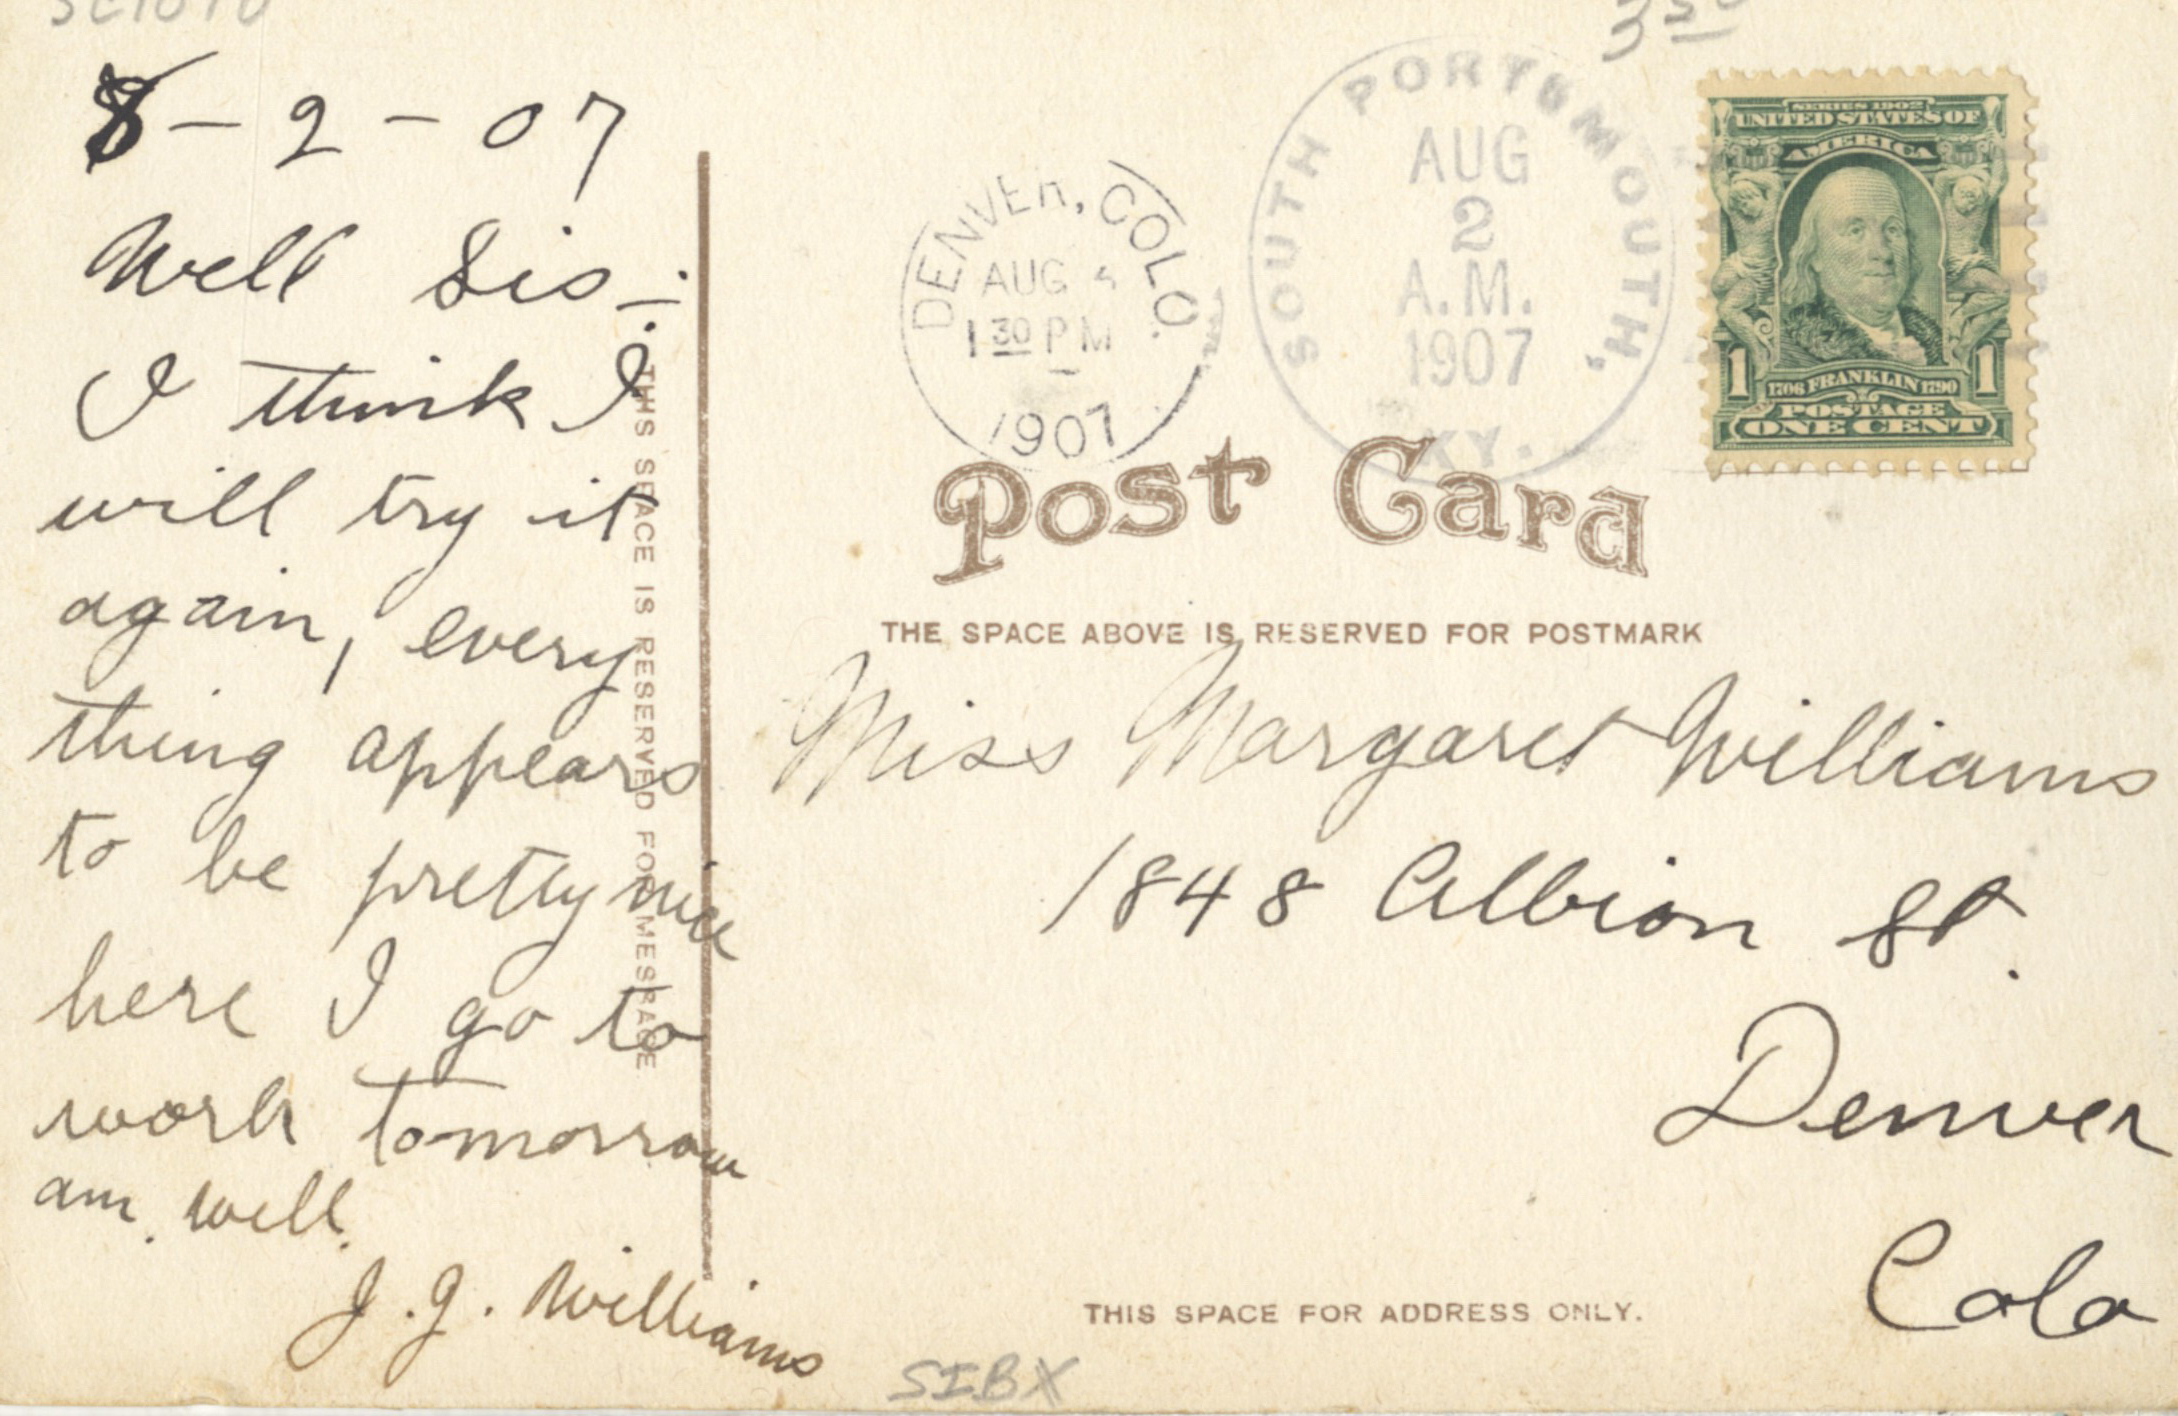 8-2-07
Well Sis-:
I think I
will try it
again, every
thing appears
to be pretty nice
here I go to
work tomorrow
am. well.
J. G. Williams
THIS SPACE IS RESERVED FOR MESSAGE
DENVER, COLO.
AUG
1 30 PM
1907
SOUTH PORTSMOUTH,
AUG
2
A.M.
1907
KY.
SERIES 1902
UNITED STATES OF
AMERICA
1 1
1706 FRANKLIN 1790
POSTAGE
ONE CENT
Post Card
THE SPACE ABOVE IS RESERVED FOR POSTMARK
Miss Margaret Williams
1848 Albion St.
Denver
Colo
THIS SPACE FOR ADDRESS ONLY.
SIBX